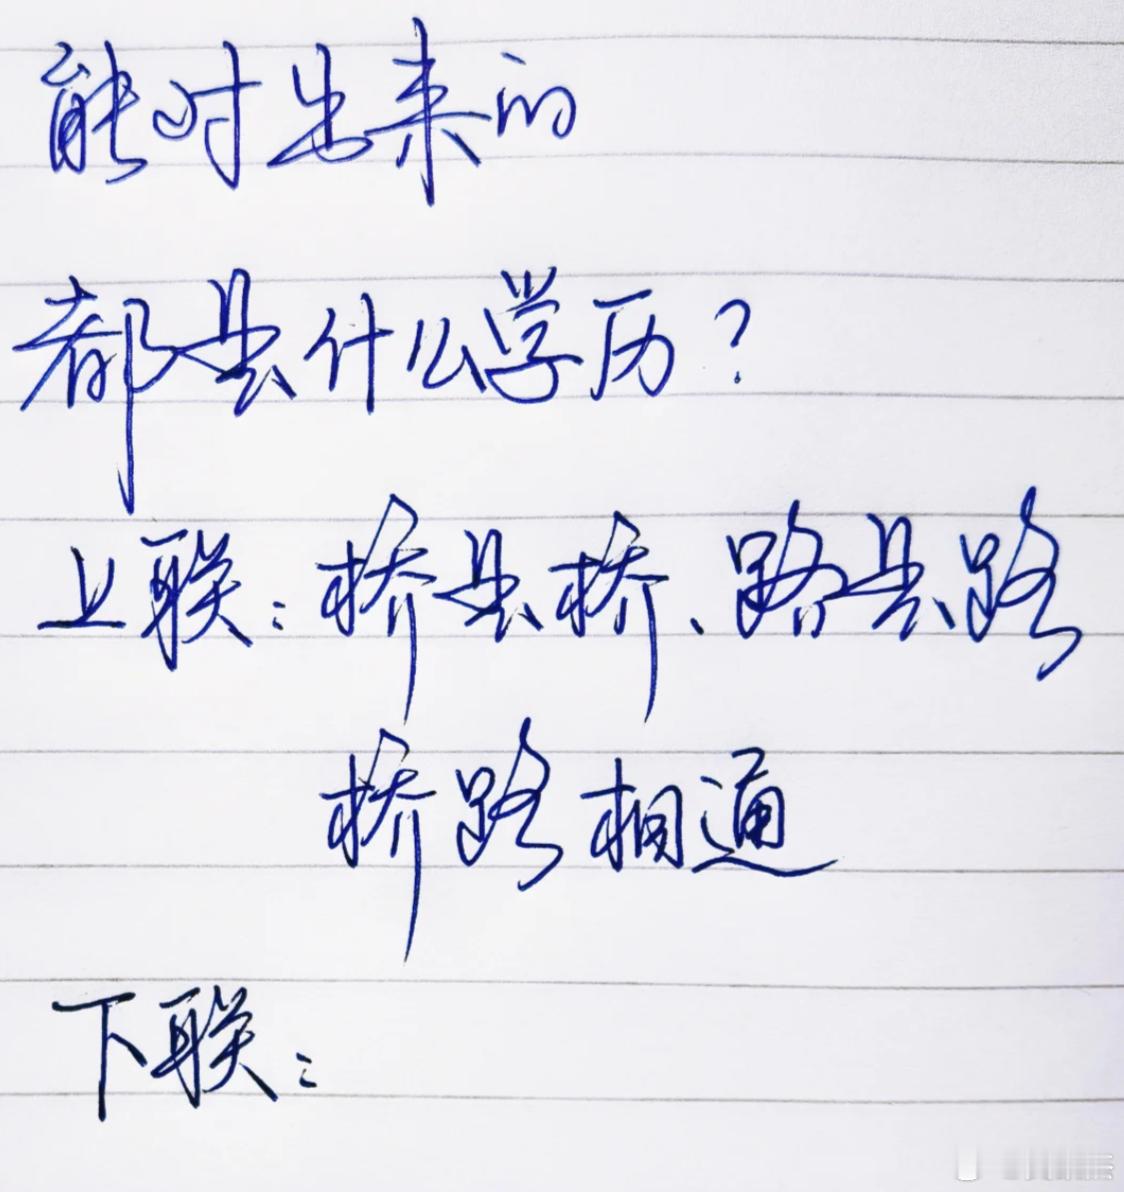 能对出来的
都是什么学历？
上联：桥是桥、路是路
桥路相通
下联：